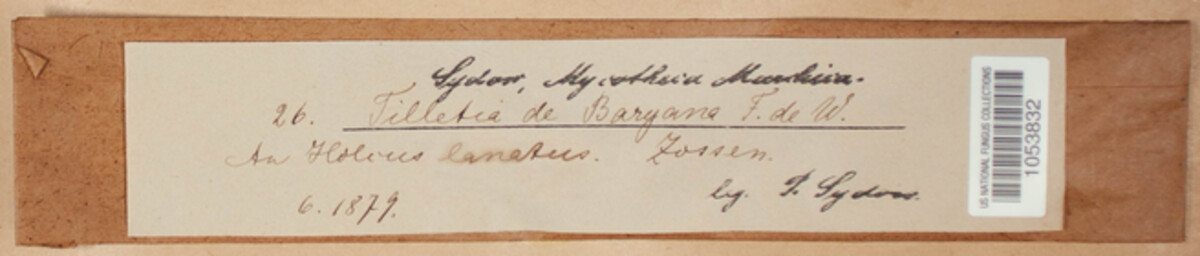 Sydow, Mycotheca Marchica.
26. Tilletia de Baryana F. de W.
An Holcus lanatus. Zossen.
6. 1879.
lg. P. Sydow.
US NATIONAL FUNGUS COLLECTIONS
1053832